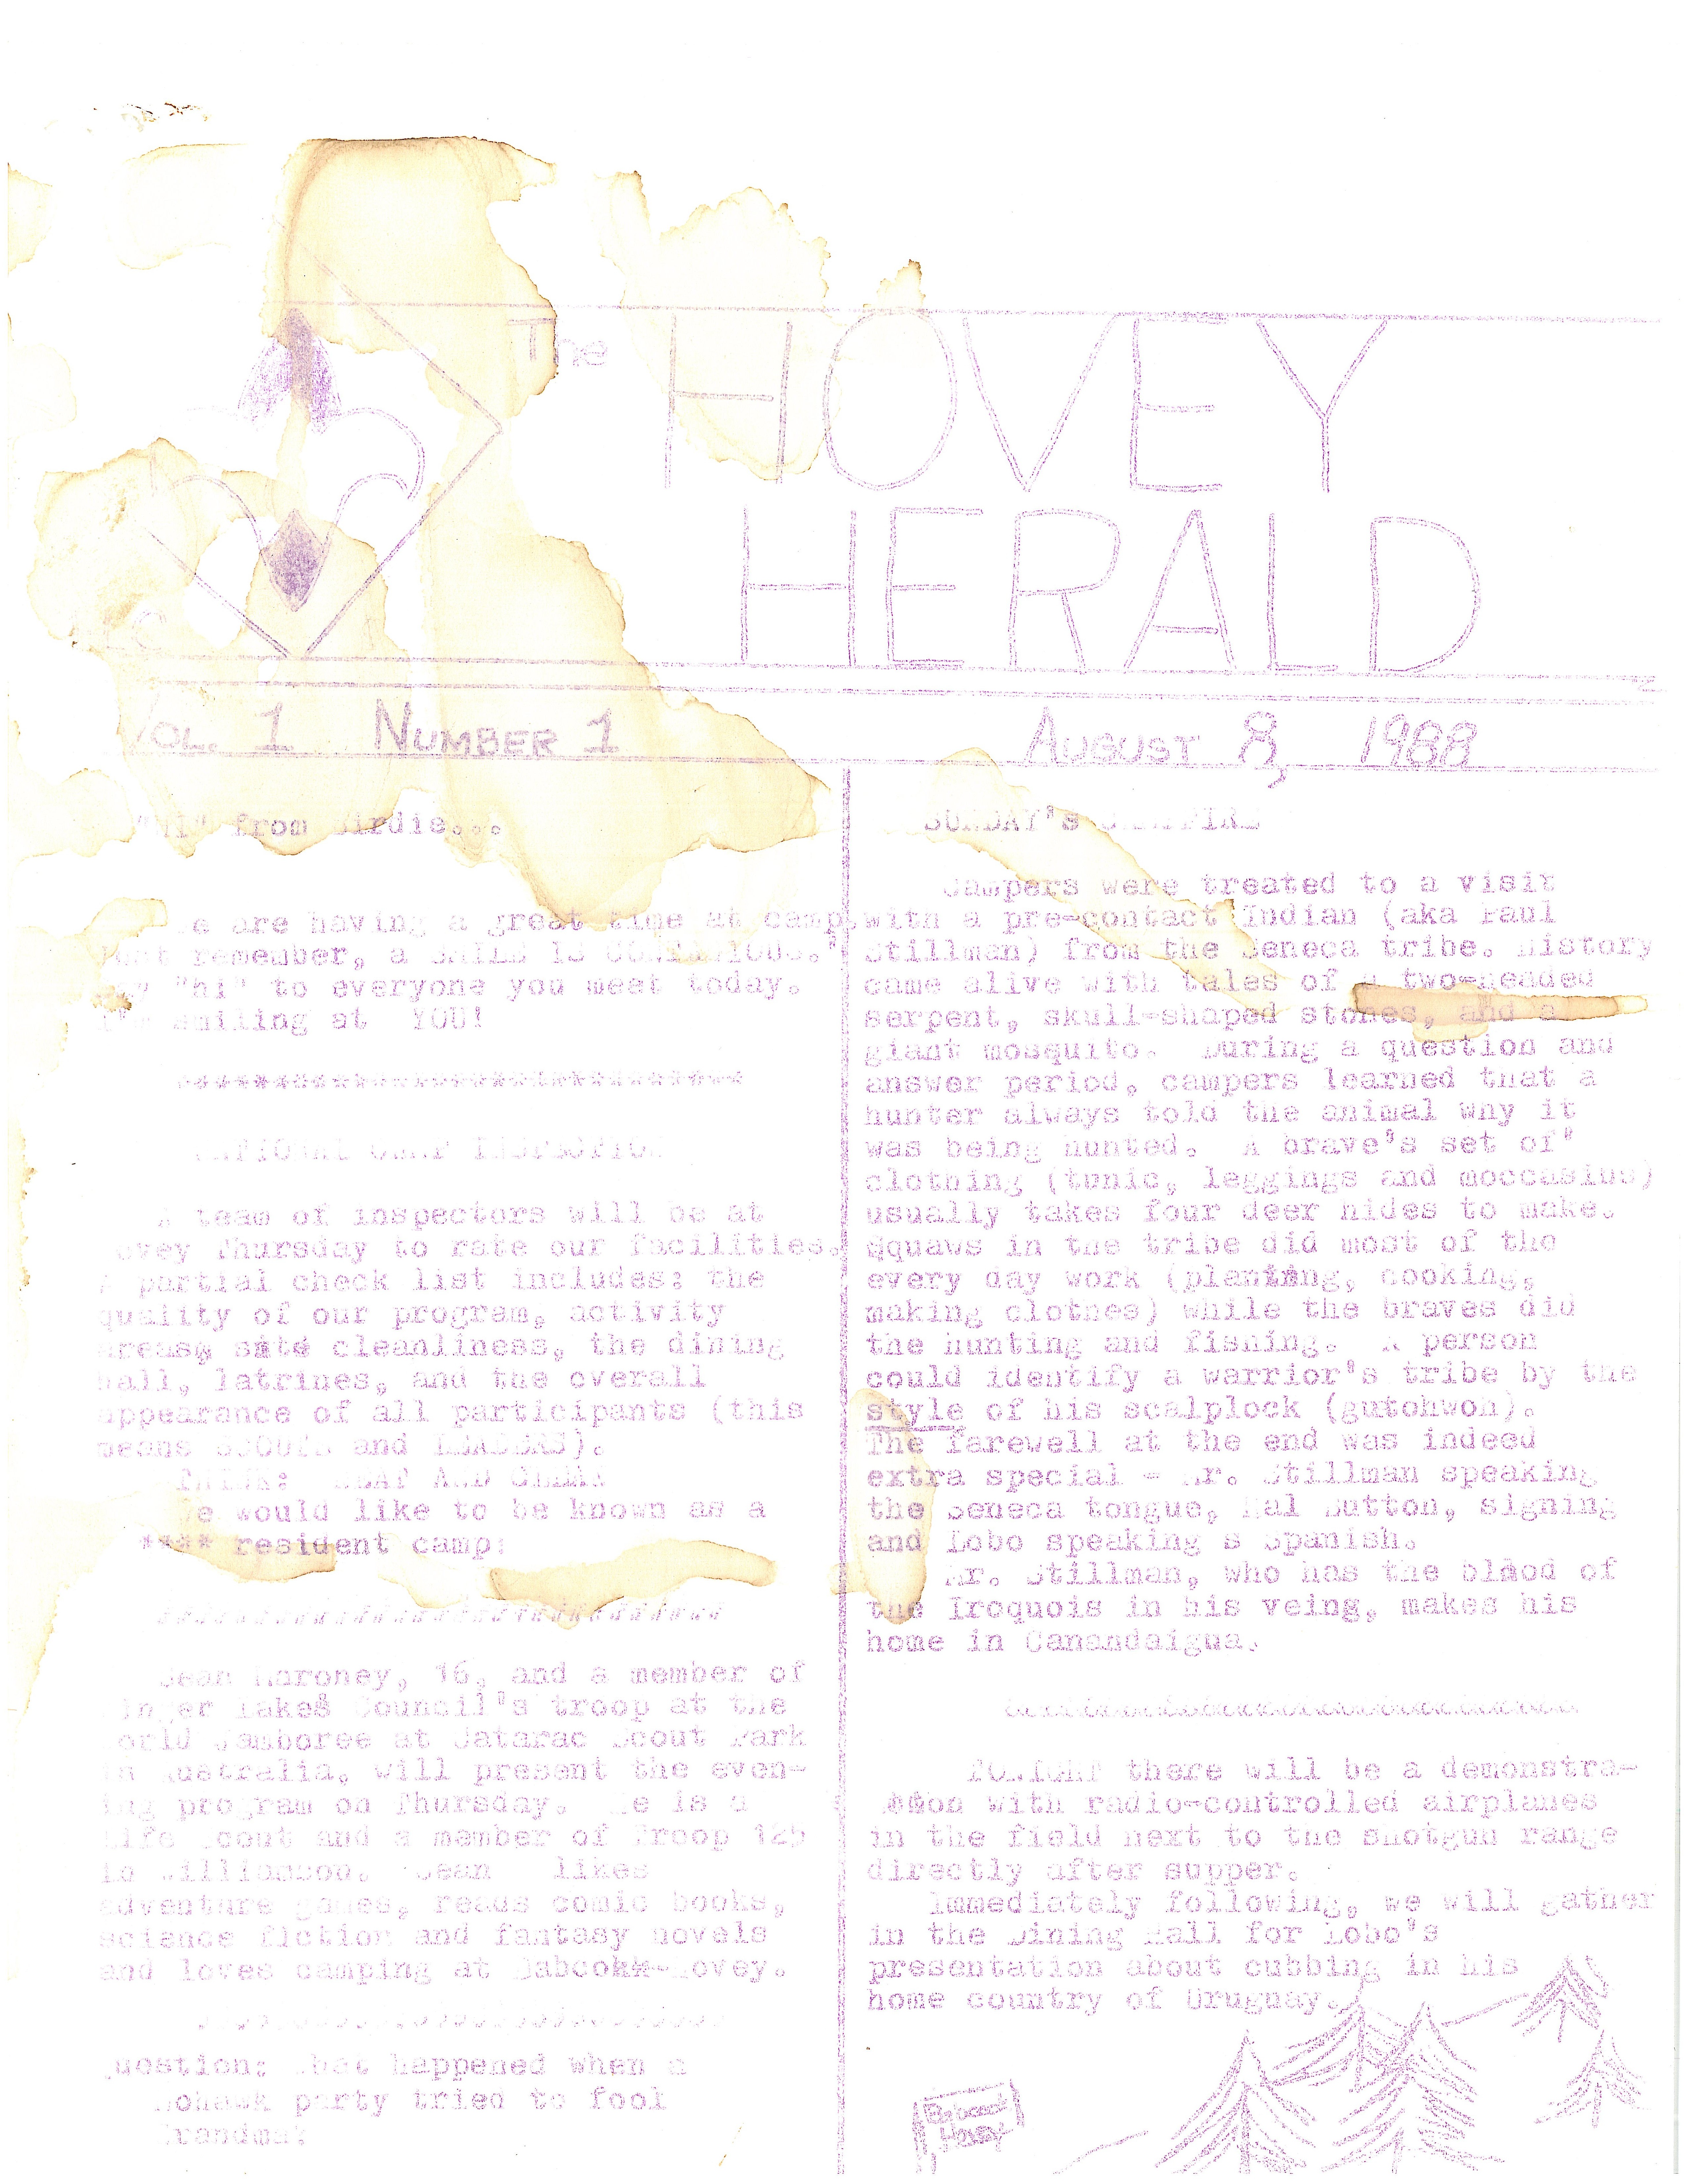 The
HOVEY
HERALD
VOL. 1 NUMBER 1
AUGUST 8, 1988
"Hi" from Birdie...
are having a great time at camp.
remember, a SMILE IS CONTAGIOUS.
"hi" to everyone you meet today.
I'm smiling at YOU!
NATIONAL CAMP INSPECTION
A team of inspectors will be at
Hovey Thursday to rate our facilities.
A partial check list includes: the
quality of our program, activity
areas, site cleanliness, the dining
hall, latrines, and the overall
appearance of all participants (this
means SCOUTS and LEADERS).
THINK: NEAT AND CLEAN
We would like to be known as a
**** resident camp!
Sean Maroney, 16, and a member of
Finger Lakes Council's troop at the
World Jamboree at Catarac Scout Park
in Australia, will present the even-
ing program on Thursday. He is a
Life Scout and a member of Troop 125
in Williamson. Sean likes
adventure games, reads comic books,
science fiction and fantasy novels
and loves camping at Babcock-Hovey.
Question: What happened when a
Mohawk party tried to fool
Grandma?
SUNDAY's CAMPFIRE
Campers were treated to a visit
with a pre-contact Indian (aka Paul
Stillman) from the Seneca tribe. History
came alive with tales of a two-headed
serpent, skull-shaped stones, and a
giant mosquito. During a question and
answer period, campers learned that a
hunter always told the animal why it
was being hunted. A brave's set of'
clothing (tunic, leggings and moccasins)
usually takes four deer hides to make.
Squaws in the tribe did most of the
every day work (planting, cooking,
making clothes) while the braves did
the hunting and fishing. A person
could identify a warrior's tribe by the
style of his scalplock (gutohwon).
The farewell at the end was indeed
extra special - Mr. Stillman speaking
the Seneca tongue, Hal Sutton, signing
and Lobo speaking s Spanish.
Mr. Stillman, who has the blood of
the Iroquois in his veing, makes his
home in Canandaigua.
TONIGHT there will be a demonstra-
tion with radio-controlled airplanes
in the field next to the shotgun range
directly after supper.
Immediately following, we will gather
in the Dining Hall for Lobo's
presentation about cubbing in his
home country of Uruguay.
Babcock
Hovey